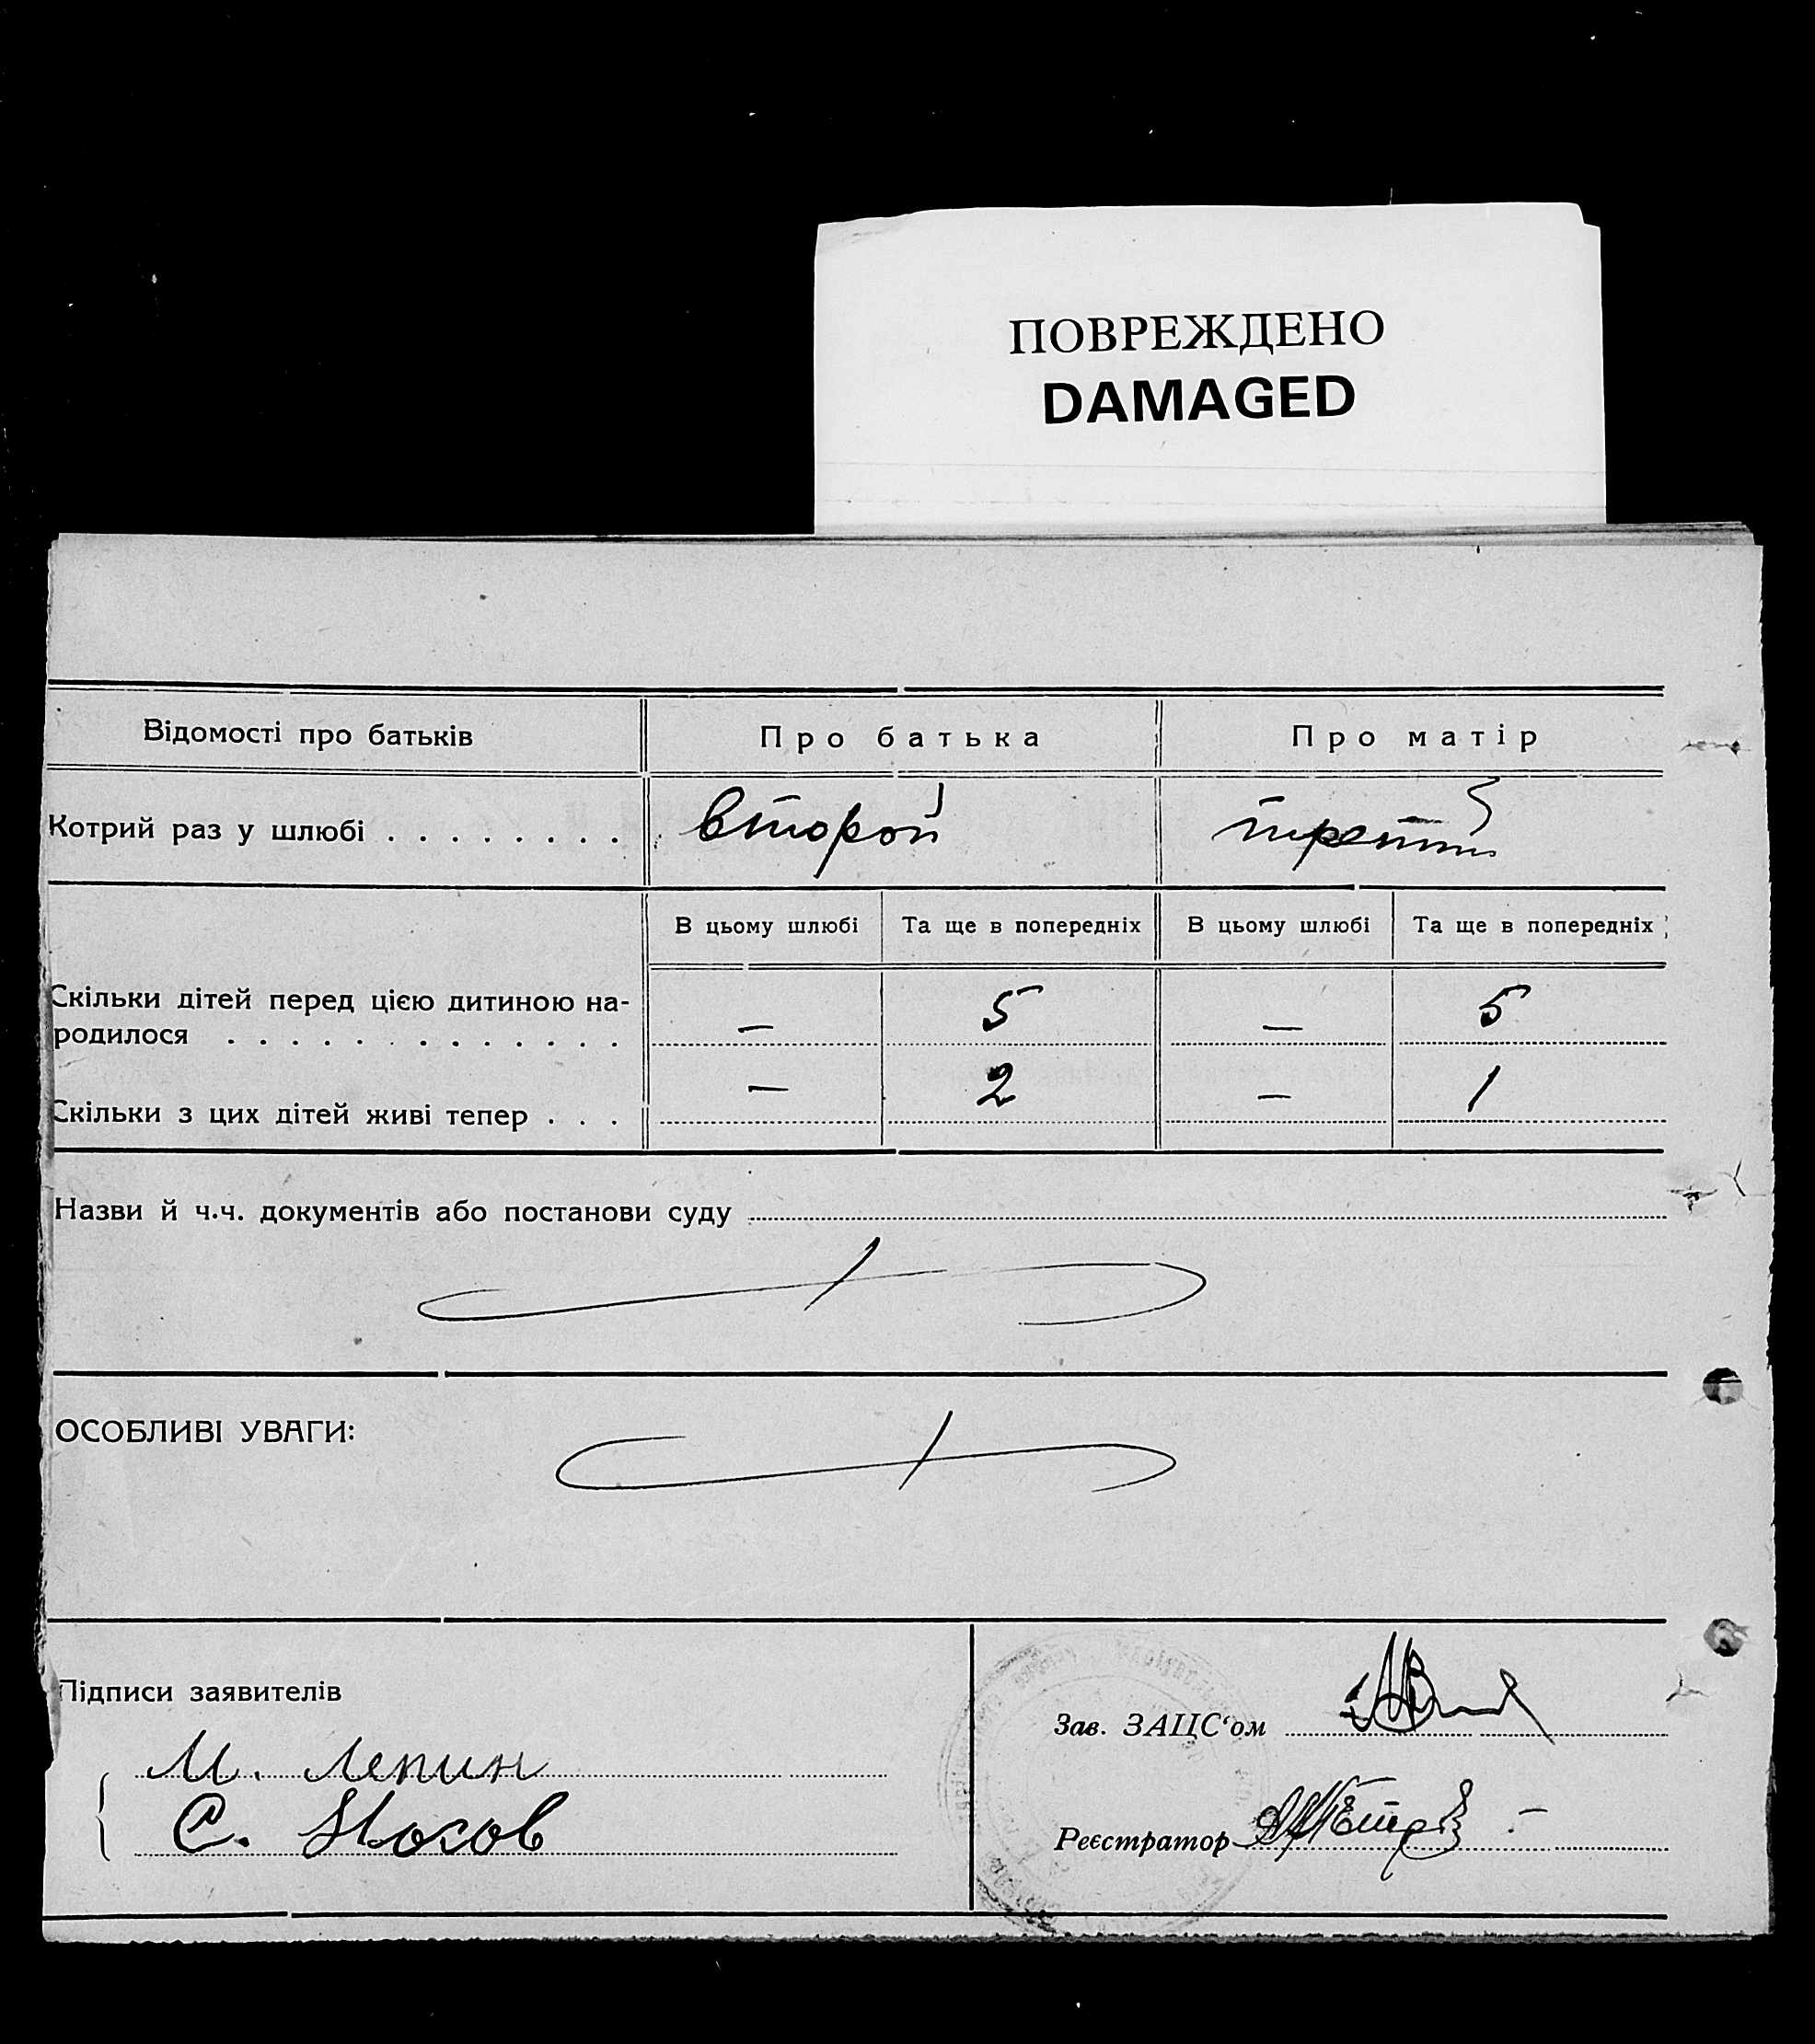 ПОВРЕЖДЕНО
DAMAGED
Відомості про батьків Про батька Про матір
Котрий раз у шлюбі . . . . . . . . второй третий
В цьому шлюбі Та ще в попередніх В цьому шлюбі Та ще в попередніх
Скільки дітей перед цією дитиною на-
родилося . . . . . . . . . . . . . — 5 — 5
Скільки з цих дітей живі тепер . . . — 2 — 1
Назви й ч.ч. документів або постанови суду
ОСОБЛИВІ УВАГИ:
Підписи заявителів
Зав. ЗАЦС‘ом
М. Лепин
С. Носов
Реєстратор